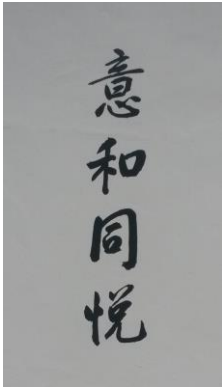 意和同悦